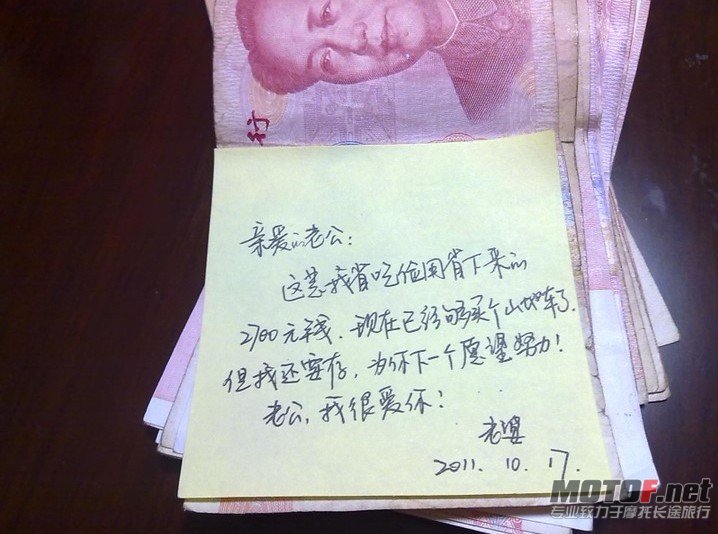 行
亲爱的老公:
这是我省吃俭用省下来的
2700元钱.现在已经够买个山地车了.
但我还要存,为你下一个愿望努力!
老公,我很爱你!
老婆
2011.10.17.
MOTOF.net
专业致力于摩托长途旅行